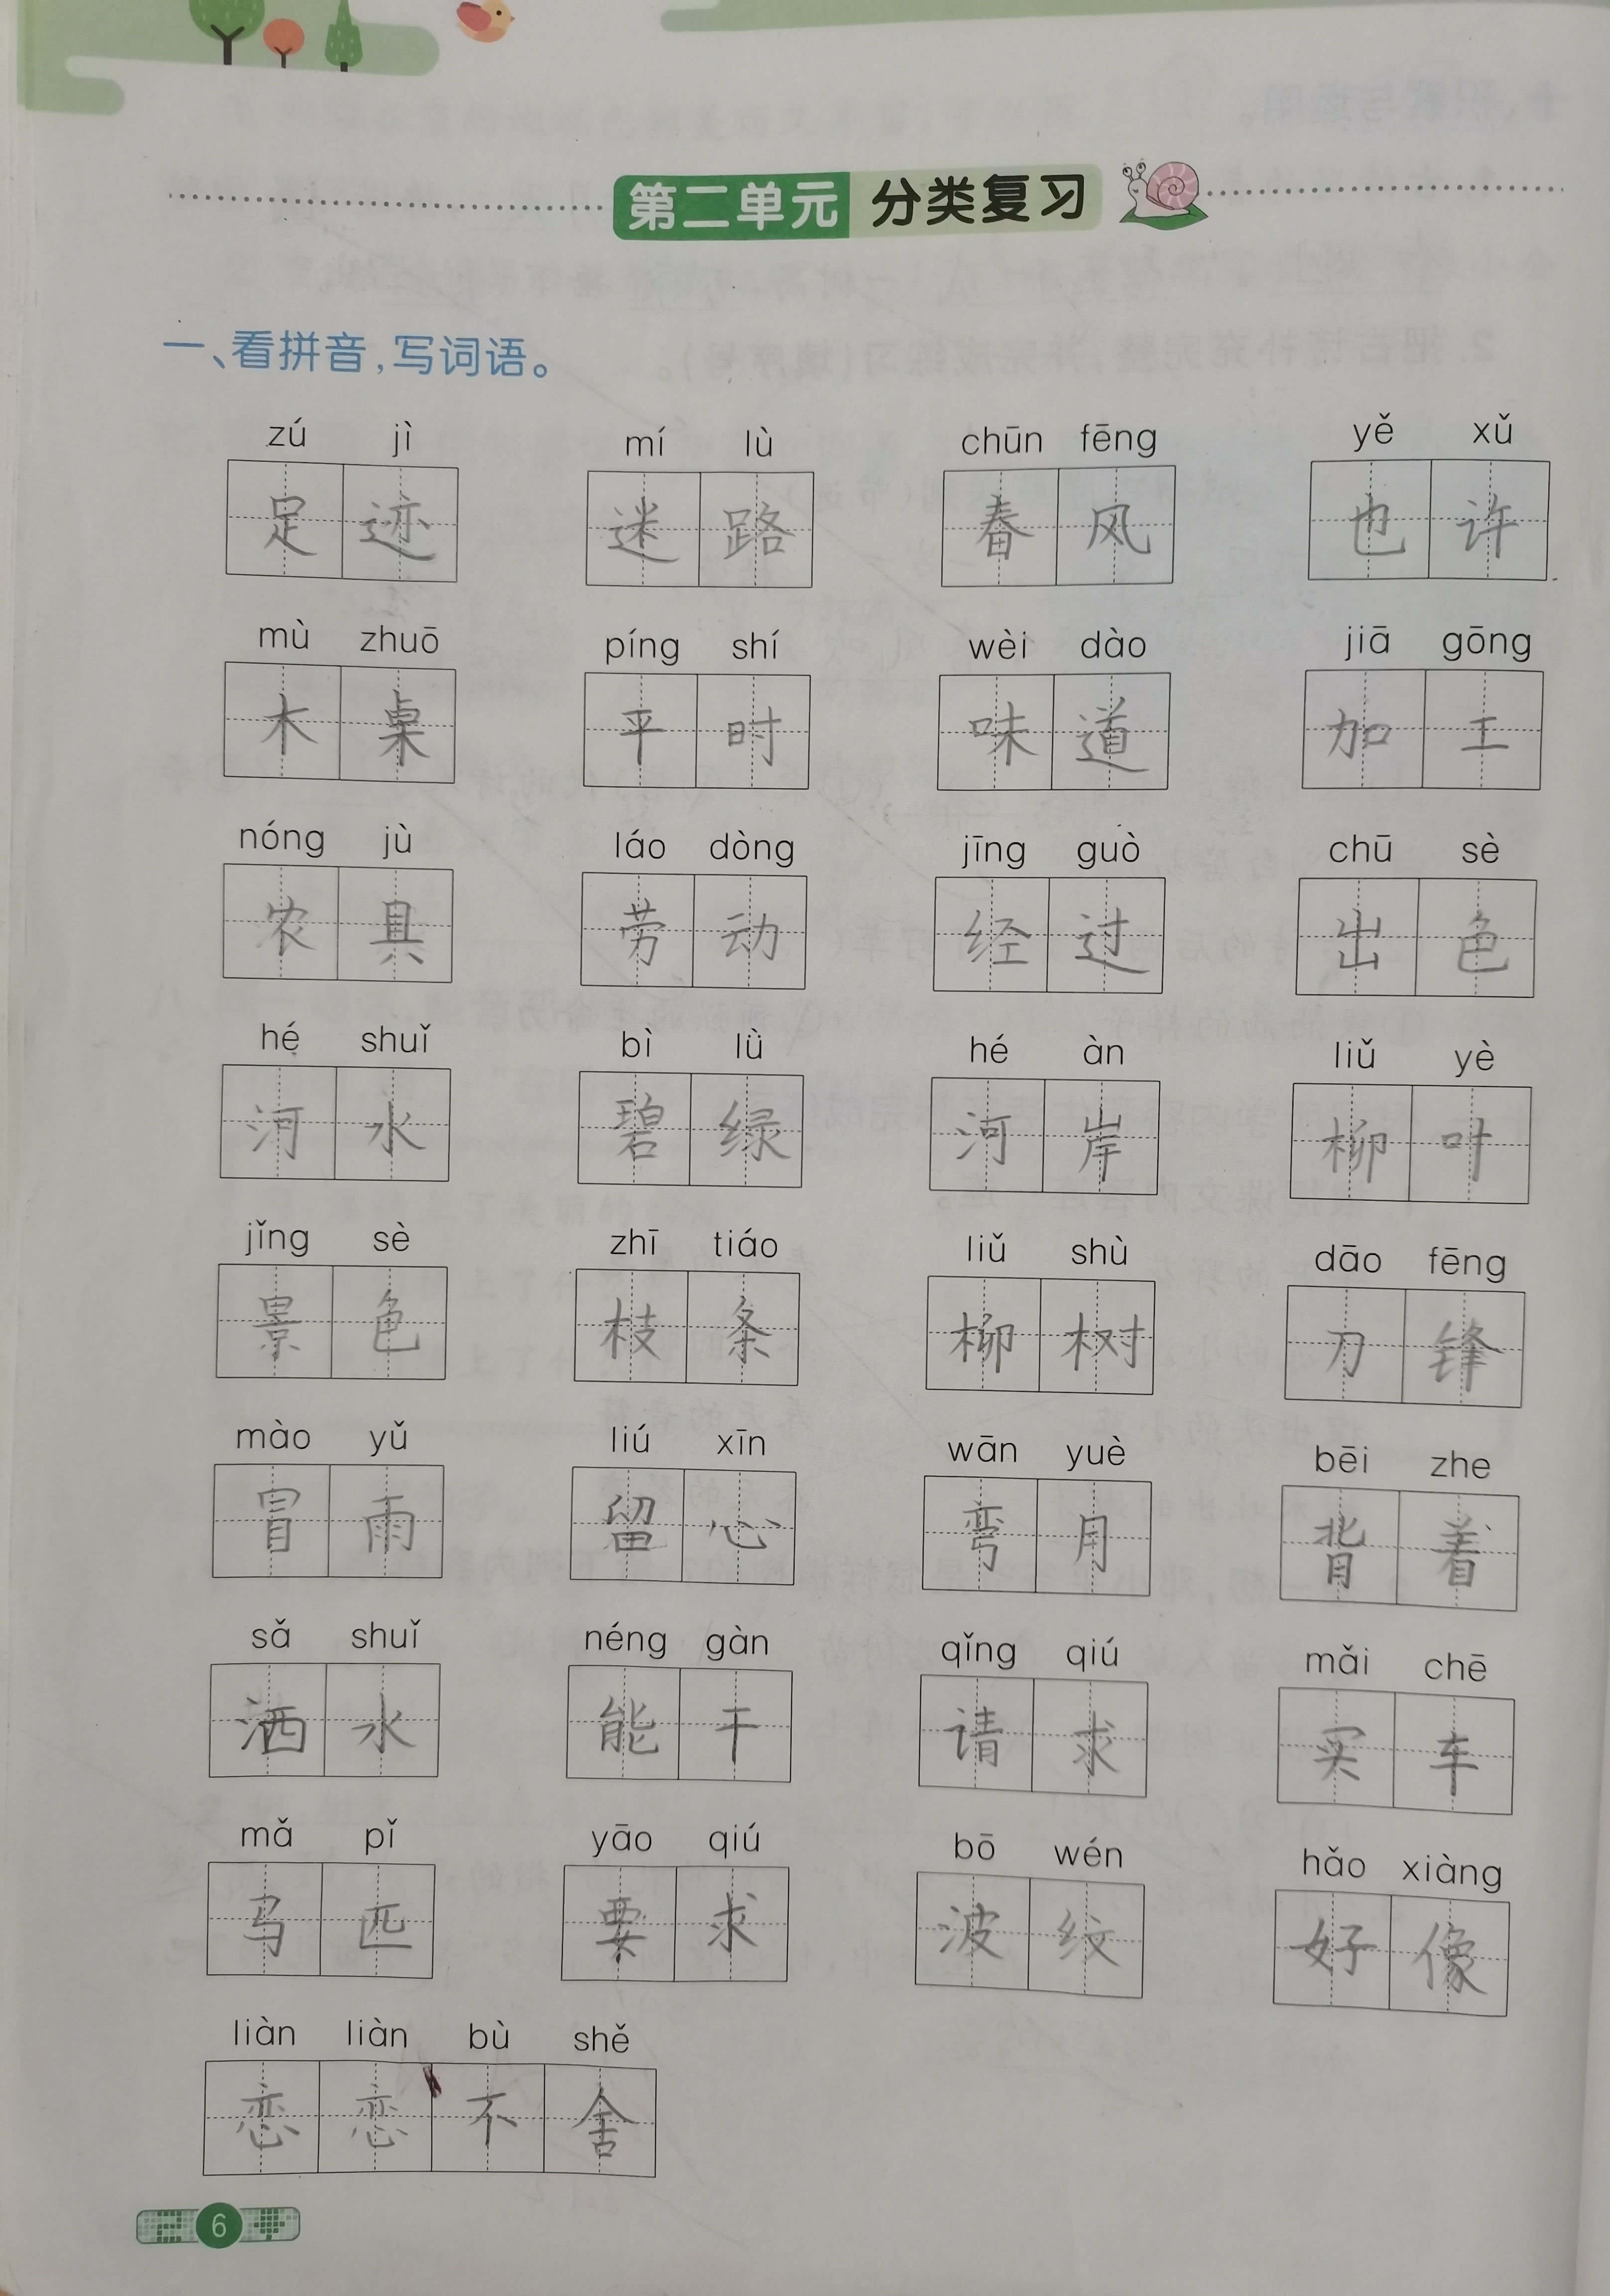 第二单元 分类复习
一、看拼音,写词语。
zú jì mí lù chūn fēng yě xǔ
足迹 迷路 春风 也许
mù zhuō píng shí wèi dào jiā gōng
木桌 平时 味道 加工
nóng jù láo dòng jīng guò chū sè
农具 劳动 经过 出色
hé shuǐ bì lǜ hé àn liǔ yè
河水 碧绿 河岸 柳叶
jǐng sè zhī tiáo liǔ shù dāo fēng
景色 枝条 柳树 刀锋
mào yǔ liú xīn wān yuè bēi zhe
冒雨 留心 弯月 背着
sǎ shuǐ néng gàn qǐng qiú mǎi chē
洒水 能干 请求 买车
mǎ pǐ yāo qiú bō wén hǎo xiàng
马匹 要求 波纹 好像
liàn liàn bù shě
恋恋不舍
6